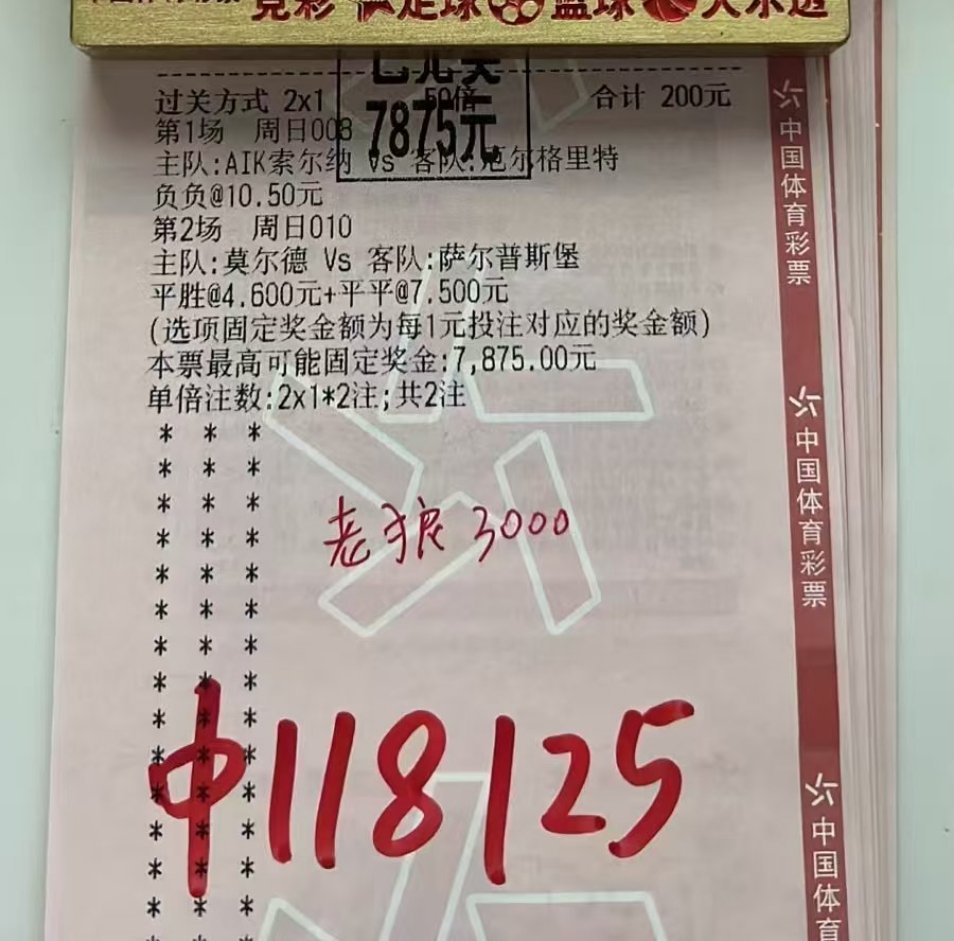 竞彩 足球 篮球 大乐透
过关方式 2x1 50倍 合计 200元
7875元
第1场 周日008
主队:AIK索尔纳 Vs 客队:厄尔格里特
负负@10.50元
第2场 周日010
主队:莫尔德 Vs 客队:萨尔普斯堡
平胜@4.600元+平平@7.500元
(选项固定奖金额为每1元投注对应的奖金额)
本票最高可能固定奖金:7,875.00元
单倍注数:2x1*2注;共2注
* * *
* * *
* * *
* * *
* * *
* * *
* * *
* * *
* * *
* * *
* * *
* * *
* * *
* * *
* * *
老狼 3000
中118125
中国体育彩票
中国体育彩票
中国体育